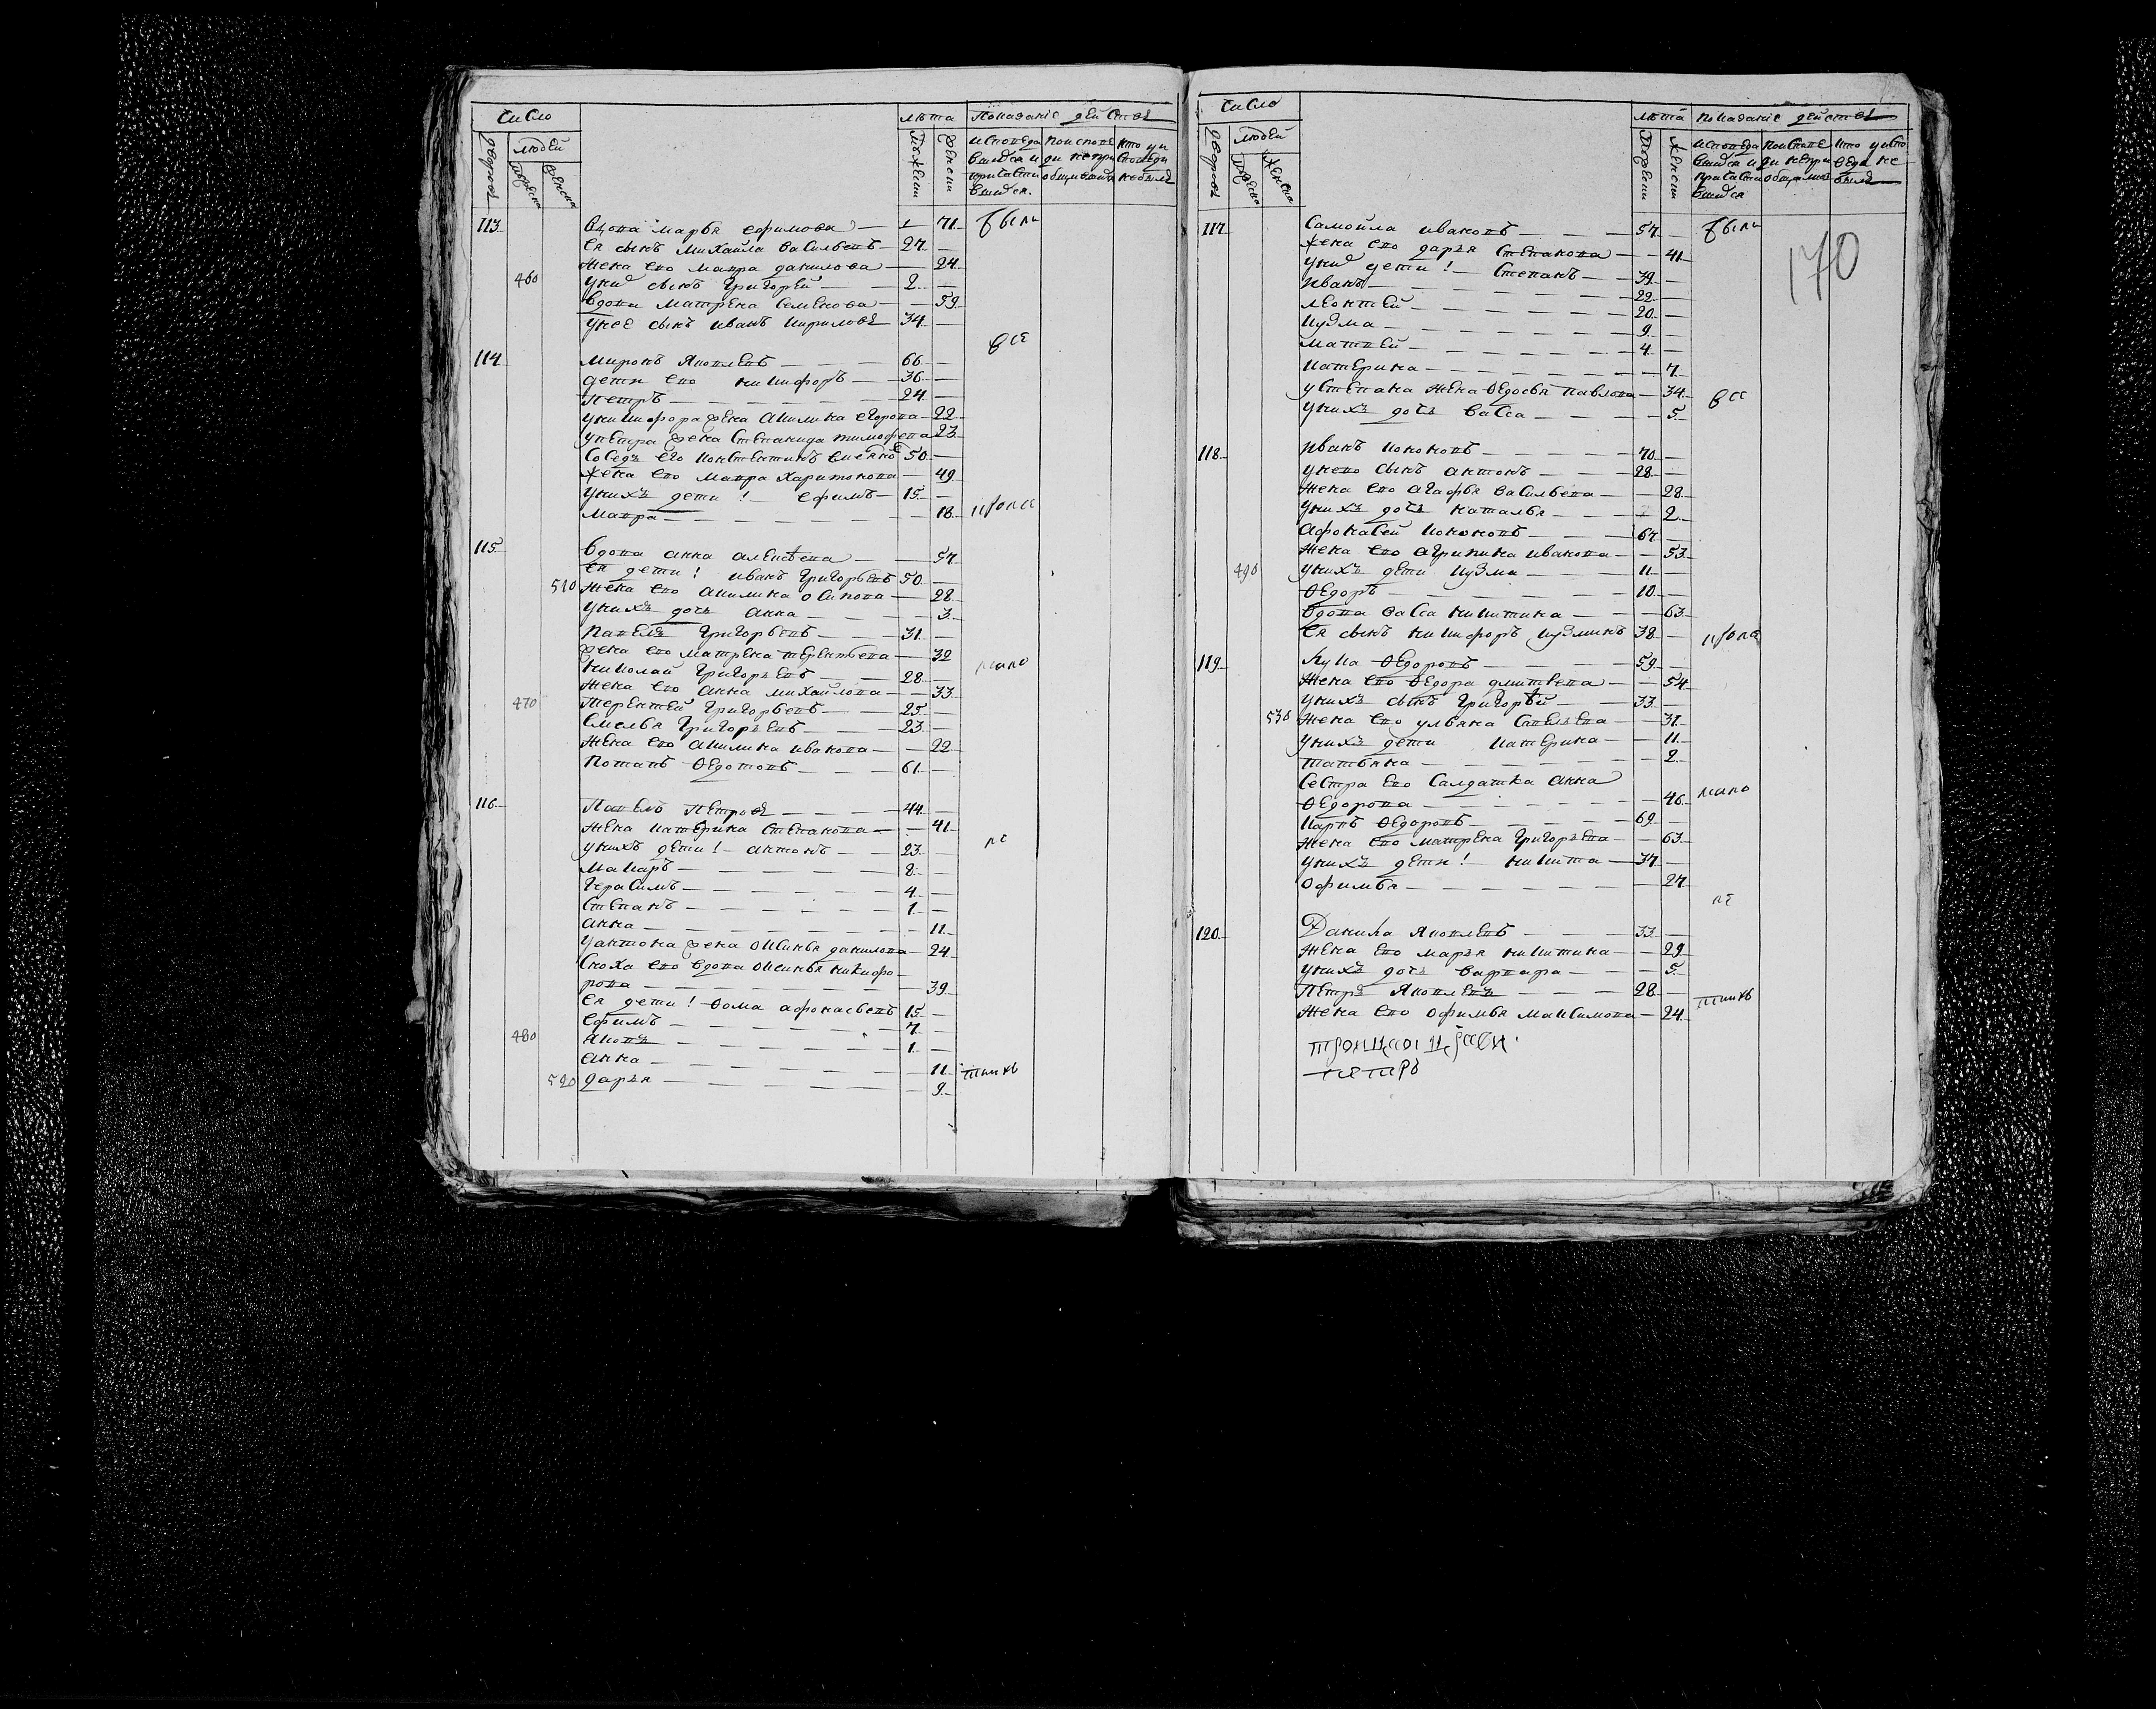 число
лѣта Показаніе действъ
дворовъ людей
мужеска женска
мужеск женски
исповеда по испове кто у и
вшихся и ди не при споведи
причасти общившихся не былъ
вшихся.
113. вдова марья ефимова — 71. были
ея сынъ михайла васильевъ 27.
жена ево мавра данилова — 24.
460 у них сынъ григорей — 2.
вдова матрена семенова — 59.
у нее сынъ иванъ кирилов 34.
все
114 миронъ яковлевъ — 66.
дети ево никифоръ — 36.
петръ — 24.
у никифора жена акилина егорова 22.
у петра жена степанида тимофева 23.
соседъ его констентинъ 50.
жена ево мавра харитонова 49.
у нихъ дети! ефимъ — 15.
мавра — 18.
115. вдова анна алексѣева — 57.
ея дети! иванъ григорьевъ 50.
510 жена ево акилина осипова — 28.
у нихъ дочь анна — 3.
павелъ григорьевъ — 31.
жена ево матрена терентьева — 32
николай григорьевъ — 28.
жена ево анна михайлова — 33.
470 терентей григорьевъ — 25.
емелья григорьевъ — 23.
жена ево акилина иванова — 22.
потапъ ѳедотовъ — 61.
116. павелъ петровъ — 44.
жена катерина степанова — 41.
у нихъ дети! антонъ — 23.
макаръ — 8.
герасимъ — 4.
степанъ — 1.
анна — 11.
у антона жена оксинья данилова — 24.
сноха ево вдова оксинья никифо-
рова — 39.
ея дети! ѳома афонасьевъ 15.
ефимъ — 7.
480 яковъ — 1.
анна — 11.
520 дарья — 9.
число
лѣта показаніе действъ
дворовъ людей
117. самойла ивановъ — 57. были
жена ево дарья степанова — 41.
у них дети! степанъ — 39.
170
иванъ — 22.
леонтей — 20.
кузма — 9.
матвей — 4.
катерина — 7.
у степана жена ѳедосья павлова 34.
у нихъ дочь васса — 5.
все
118. иванъ кононовъ — 70.
у нево сынъ антонъ — 28.
жена ево агафья васильева — 28.
у нихъ дочь наталья — 2.
афонасей кононовъ — 67.
жена ево агрипина иванова — 53.
490 у нихъ дети кузма — 11.
ѳедоръ — 10.
вдова васса никитина — 63.
ея сынъ никифоръ кузминъ 38.
119. лука ѳедоровъ — 59.
жена ево ѳедора дмитвева — 54.
у нихъ сынъ григорѣй — 33.
530 жена ево ульяна савельева — 31.
у нихъ дети катерина — 11.
татьяна — 2.
сестра ево салдатка анна
ѳедорова — 46.
карпъ ѳедоровъ — 69.
жена ево матрена григорьева — 63.
у нихъ дети! никита — 37.
офимья — 27.
120. Данила яковлевъ — 33.
жена ево марья никитина — 29.
у нихъ дочь варвара — 5.
петръ яковлевъ — 28.
жена ево офимья максимова — 24.
петръ